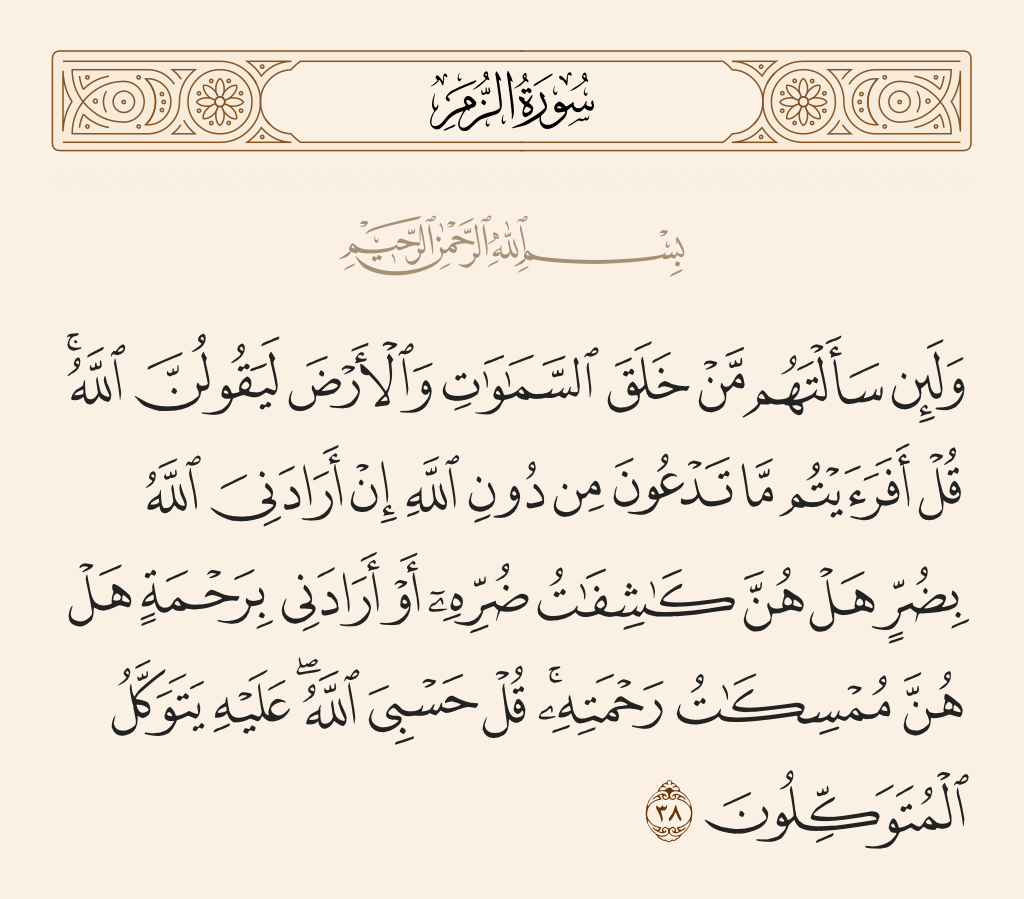 سُورَةُ الزُّمَرِ
بِسْمِ ٱللَّهِ ٱلرَّحْمَٰنِ ٱلرَّحِيمِ
وَلَئِن سَأَلْتَهُم مَّنْ خَلَقَ ٱلسَّمَٰوَٰتِ وَٱلْأَرْضَ لَيَقُولُنَّ ٱللَّهُ ۚ
قُلْ أَفَرَءَيْتُم مَّا تَدْعُونَ مِن دُونِ ٱللَّهِ إِنْ أَرَادَنِىَ ٱللَّهُ
بِضُرٍّ هَلْ هُنَّ كَٰشِفَٰتُ ضُرِّهِۦٓ أَوْ أَرَادَنِى بِرَحْمَةٍ هَلْ
هُنَّ مُمْسِكَٰتُ رَحْمَتِهِۦ ۚ قُلْ حَسْبِىَ ٱللَّهُ ۖ عَلَيْهِ يَتَوَكَّلُ
ٱلْمُتَوَكِّلُونَ ٣٨